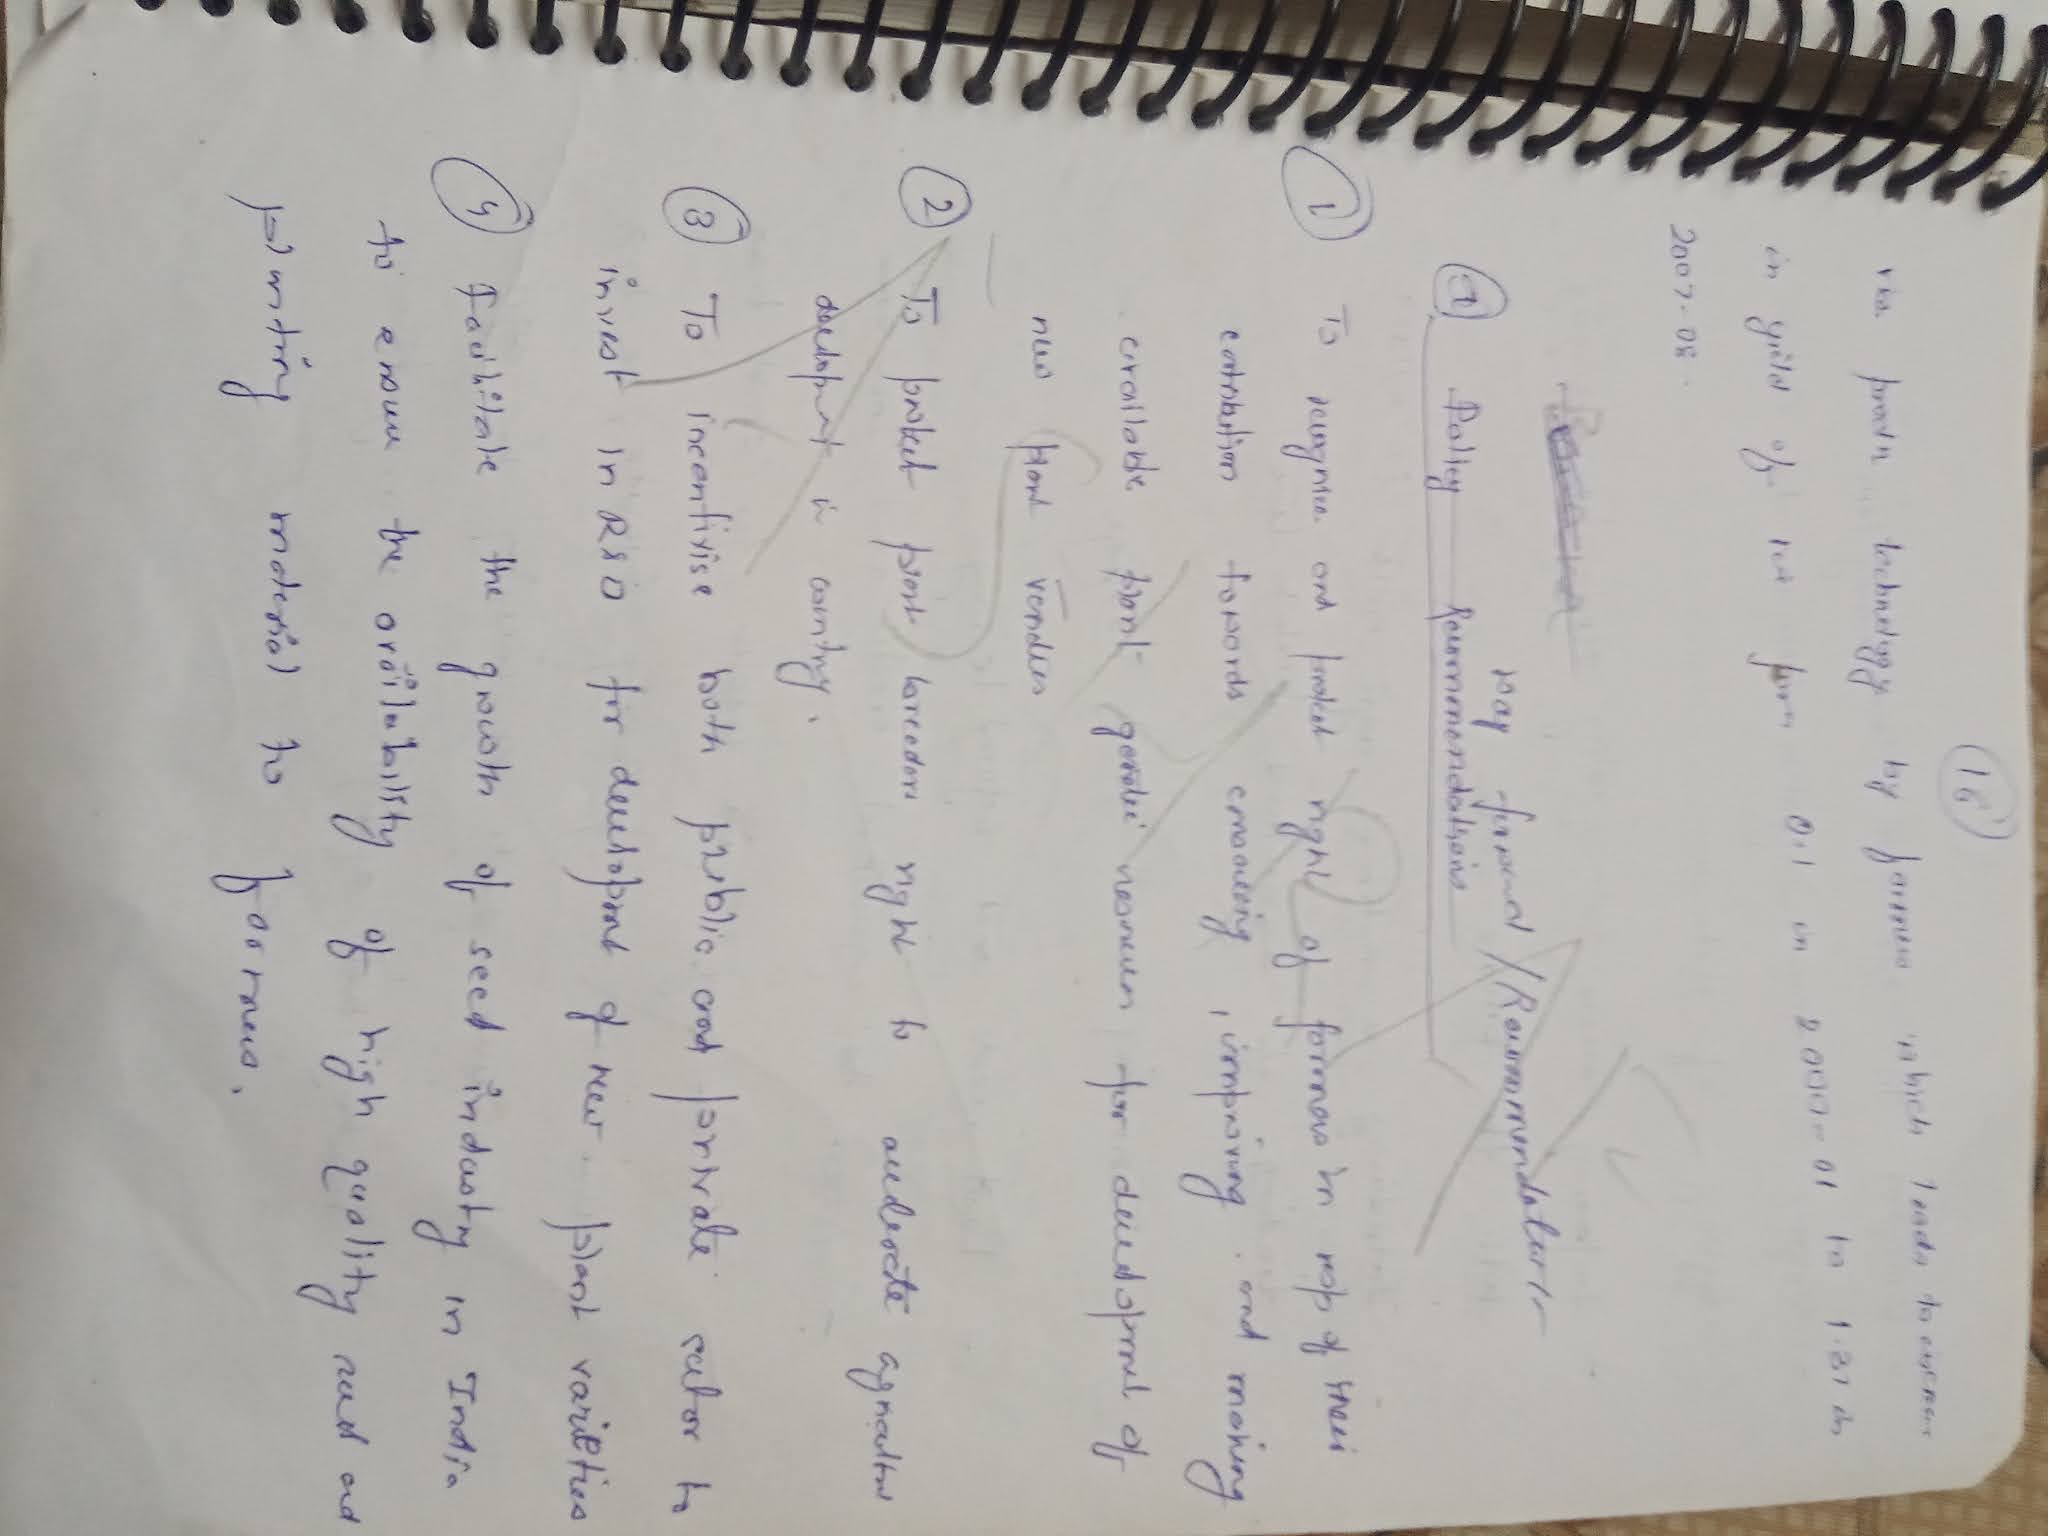 16
via prodn technology by farmers which leads to increase
in yield of rat from 0.1 in 2000-01 to 1.31 in
2007-08.
way forward / Recommendations
7 Policy Recommendations
1 To recognise and protect right of farmers in resp of their
contribution towards conserving, improving and making
available plant genetic resources for development of
new plant varities
2 To protect plant breeders right to accelerate agricultural
development in country.
3 To incentivise both public and private sector to
invest in R&D for development of new plant varieties
4 Facilitate the growth of seed industry in India
to ensure the availability of high quality seed and
planting material to farmers.